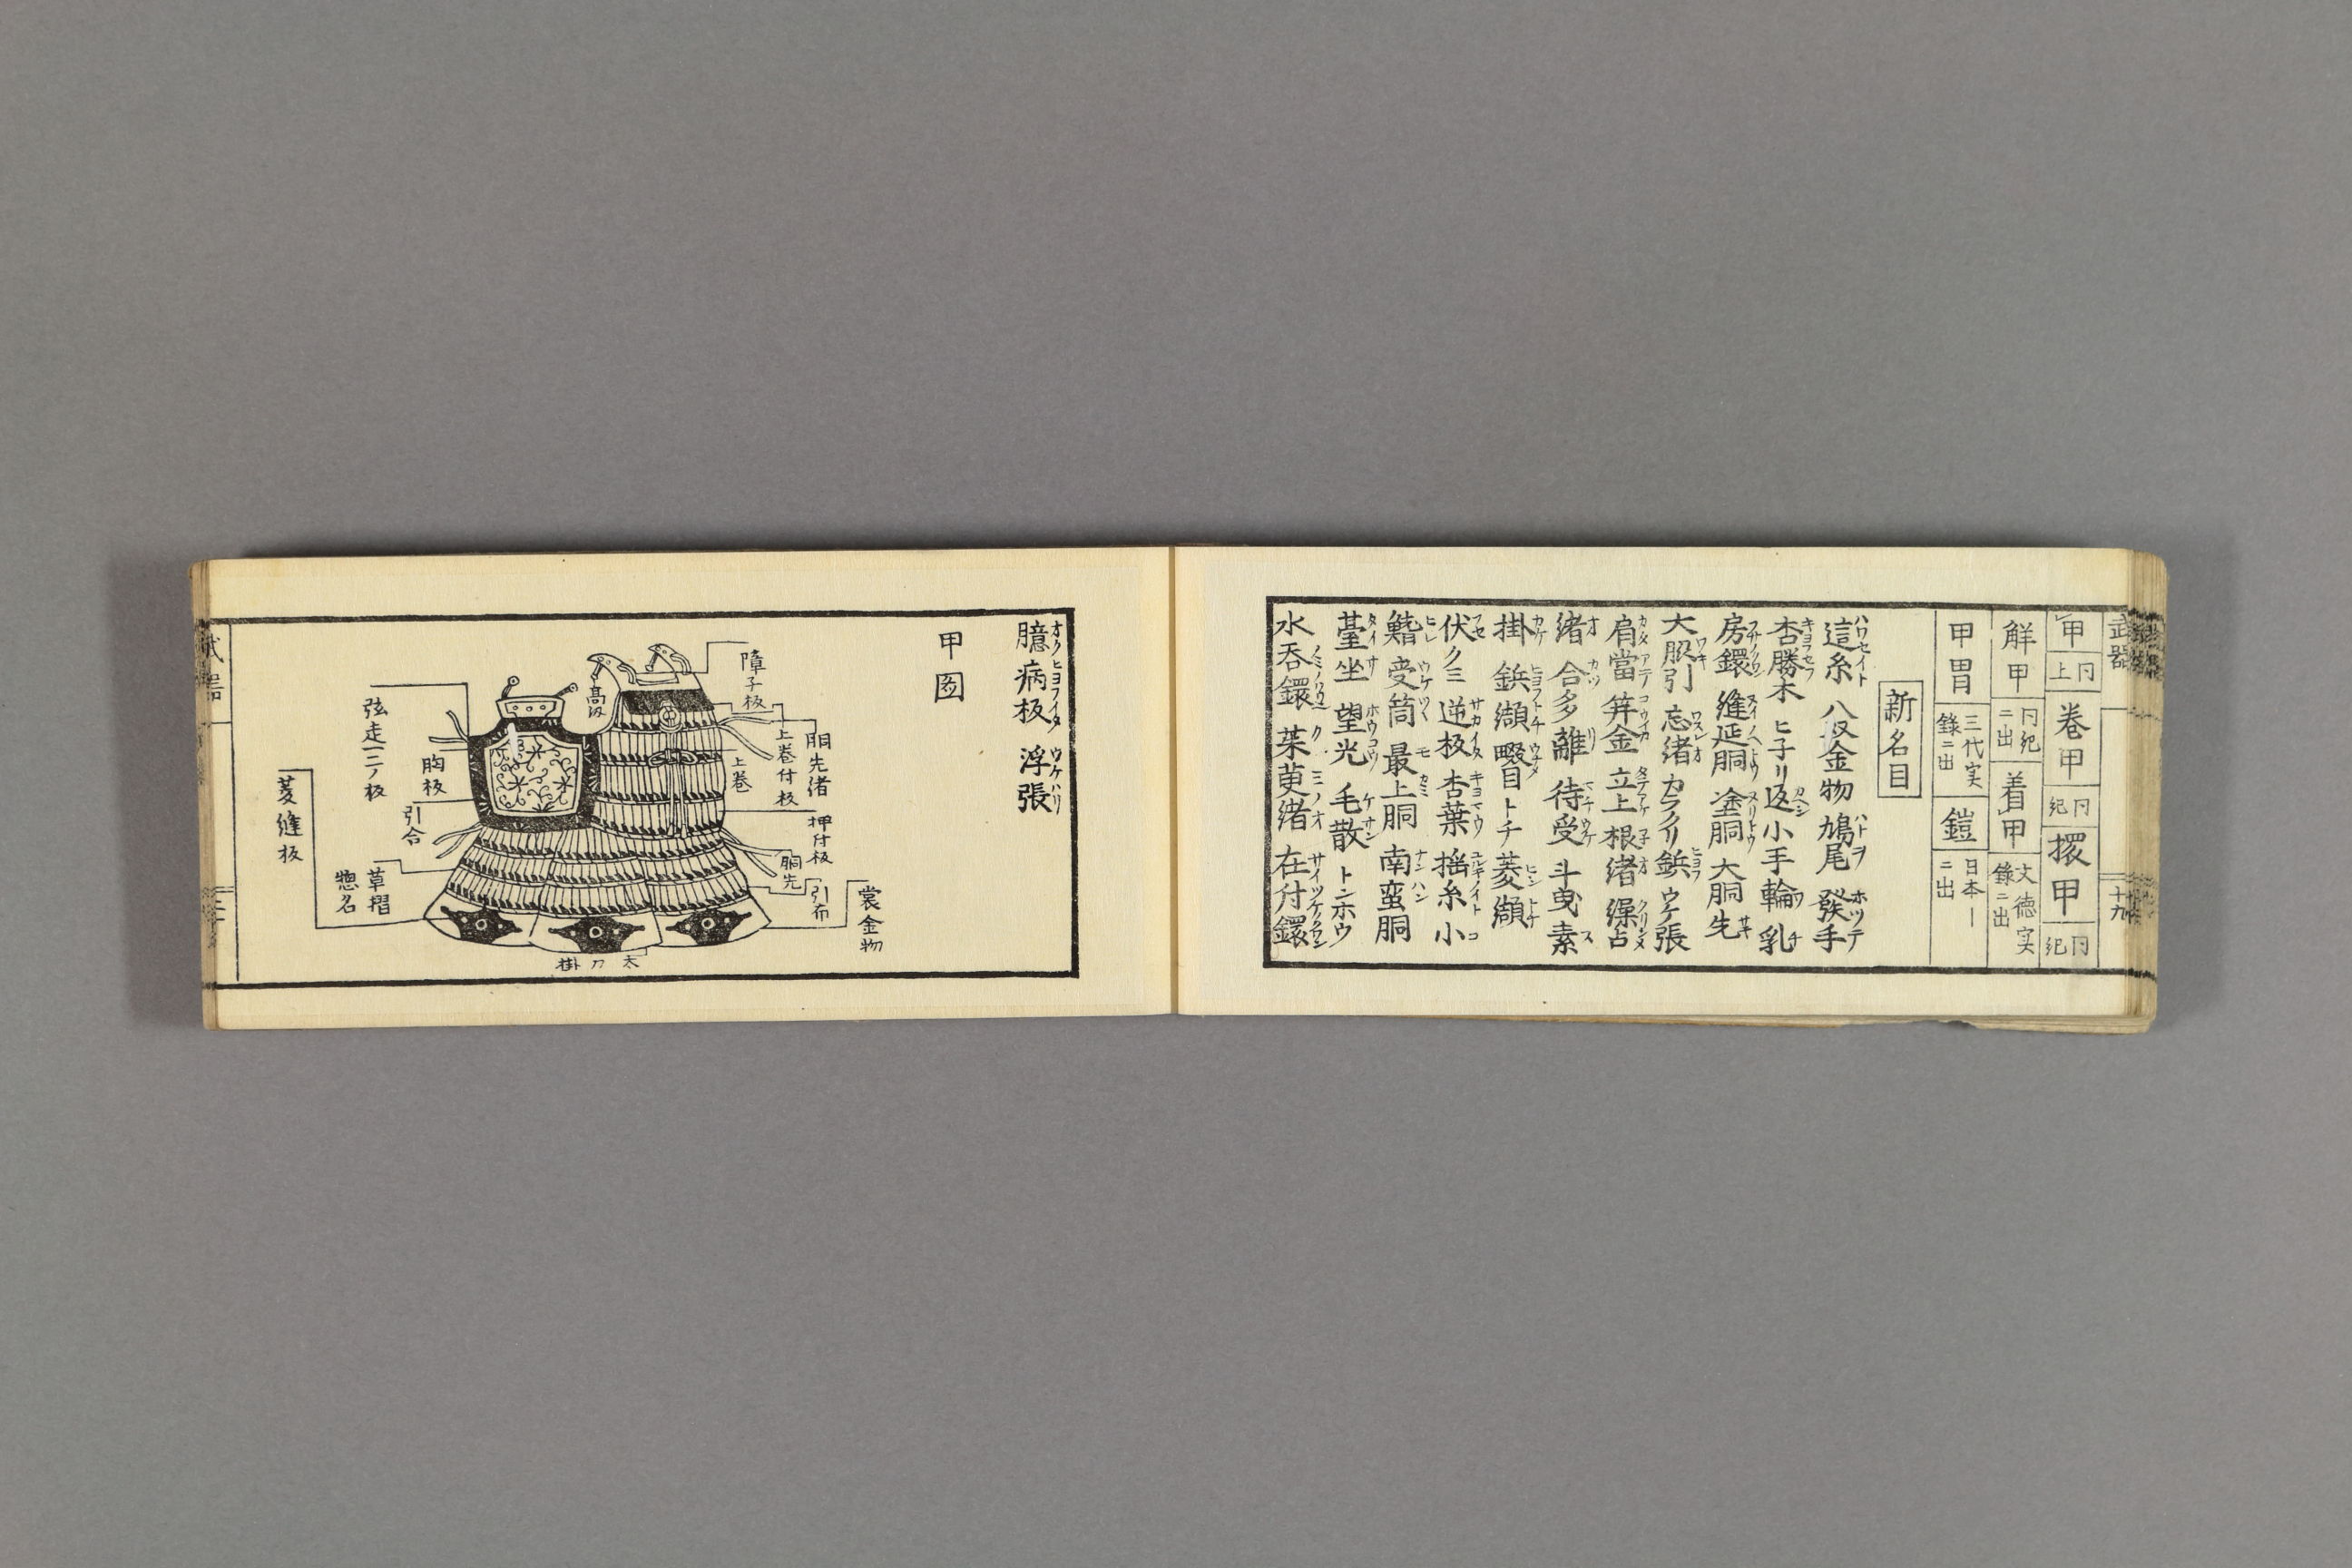 武器
十九
甲 同上 巻甲 同紀 擐甲 同紀
解甲 同紀ニ出 着甲 文徳実録ニ出
甲冑 三代実録ニ出 鎧 日本ーニ出
新名目
這糸 八双金物 鳩尾 發手
杏勝木 ヒ子リ返 小手輪 乳
房鐶 縫延胴 塗胴 大胴先
大脇引 忘緒 カラクリ鋲 ウケ張
肩當 笄金 立上 根緒 繰占
緒 合多離 待受 斗曳 素
掛 鋲纈 畷目トチ 菱纈
伏クミ 逆板 杏葉 揺糸 小
鰭 受筒 最上胴 南蛮胴
臺坐 望光 毛散 トンホウ
水呑鐶 茱萸緒 在付鐶
臆病板 浮張
甲図
障子板
高紐
胴先緒
上巻付板
上巻
押付板
胴先
引布
裳金物
太刀掛
弦走一二ノ板
胸板
引合
草摺
惣名
菱縫板
武器